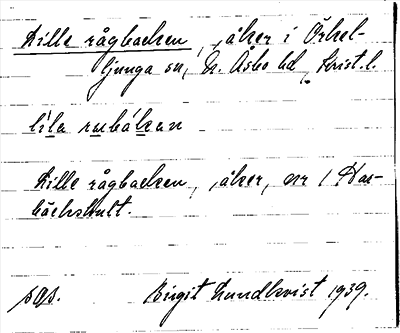 Lille rågbacken, åker i Örkel-
ljunga sn, N. Åsbo hd, Krist. l.
líla rubákan
Lille rågbacken, åker, nr 1 Har-
bäckshult.
sgs. Birgit Lundkvist 1939.